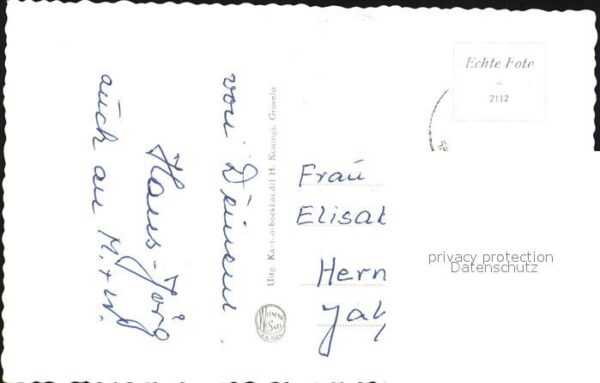 von Deinem
Hans-Jörg
auch an M. + W.
Uitg. Kantoorboekhandel H. Konings, Groenlo
Echte Foto
2112
Frau
Elisab
Herm
privacy protection
Datenschutz